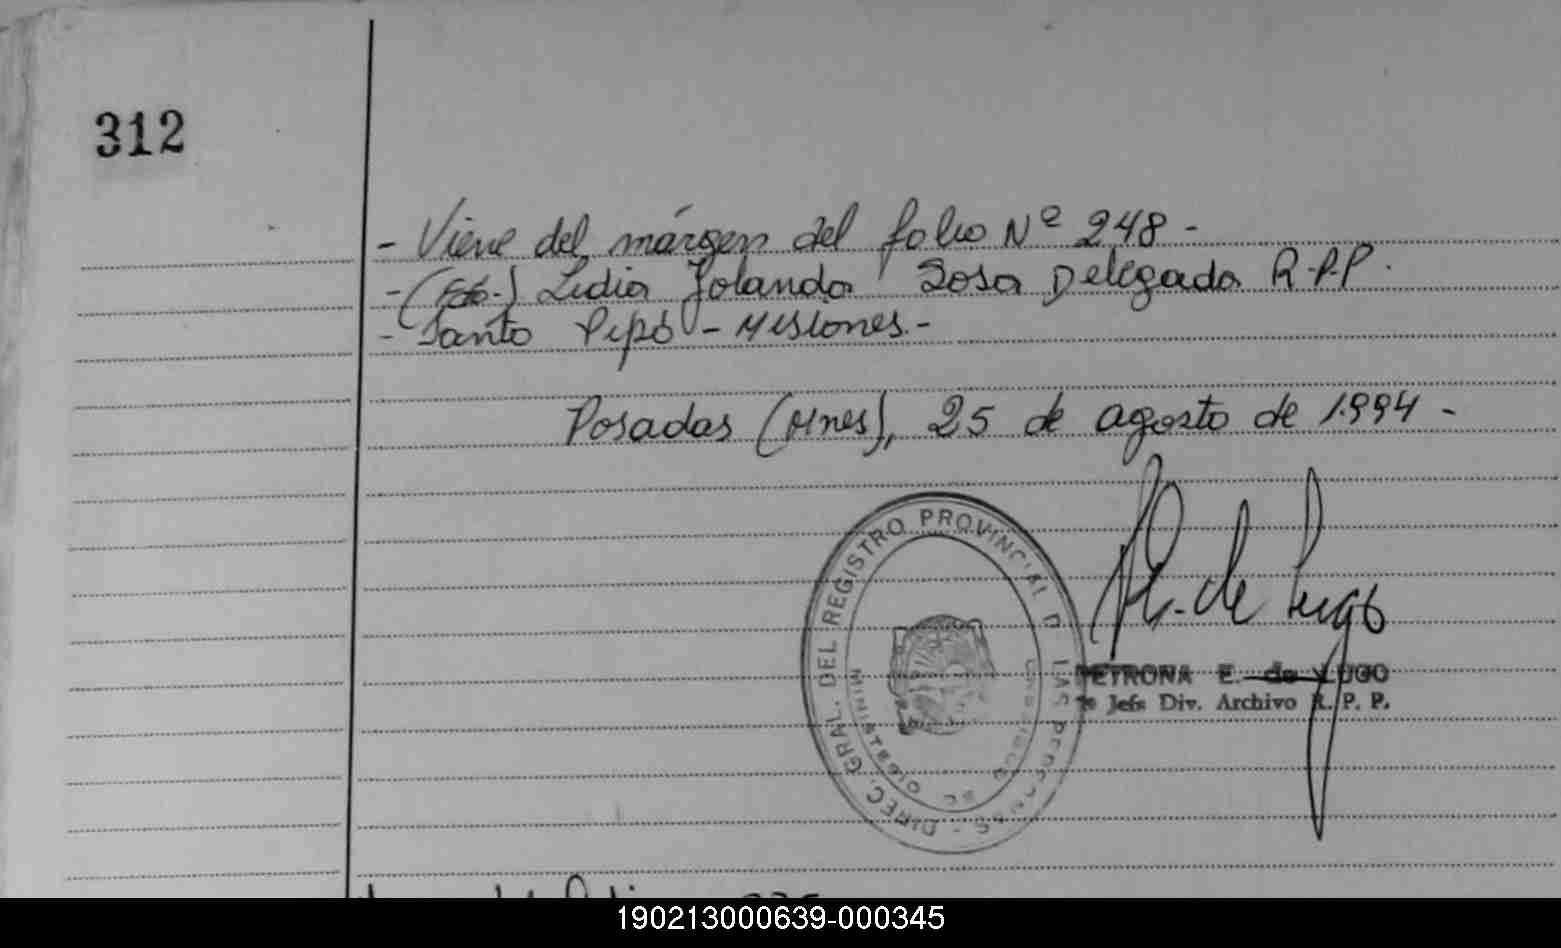 312
- Viene del márgen del folio Nº 248 -
- (Fdo.) Lidia Yolanda Sosa Delegada R.P.P.
- Santo Pipó - Misiones. -
Posadas (Mnes), 25 de agosto de 1.994 -
DIREC. GRAL. DEL REGISTRO PROVINCIAL D LAS PERSONAS -
MINISTERIO DE GOBIERNO
P.E. de Lugo
PETRONA E. de LUGO
Jefe Div. Archivo R. P. P.
190213000639-000345